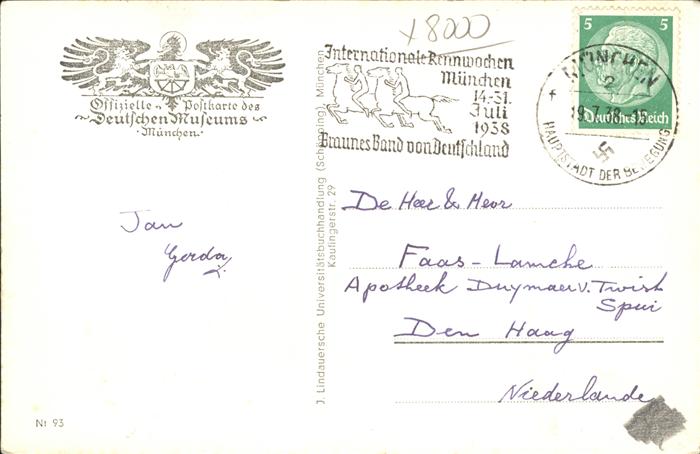 +8000
Internationale Rennwochen
München
14.-31.
Juli
1938
Braunes Band von Deutschland
5 5
Deutsches Reich
MÜNCHEN
2
19.7.38
HAUPTSTADT DER BEWEGUNG
Offizielle Postkarte des
Deutschen Museums
München
Jan
Gerda
J. Lindauersche Universitätsbuchhandlung (Schöpping), München
Kaufingerstr. 29
De Heer & Mevr
Faas - Lamche
Apotheek Duymaer v. Twist
Spui
Den Haag
Niederlande
Nr 93